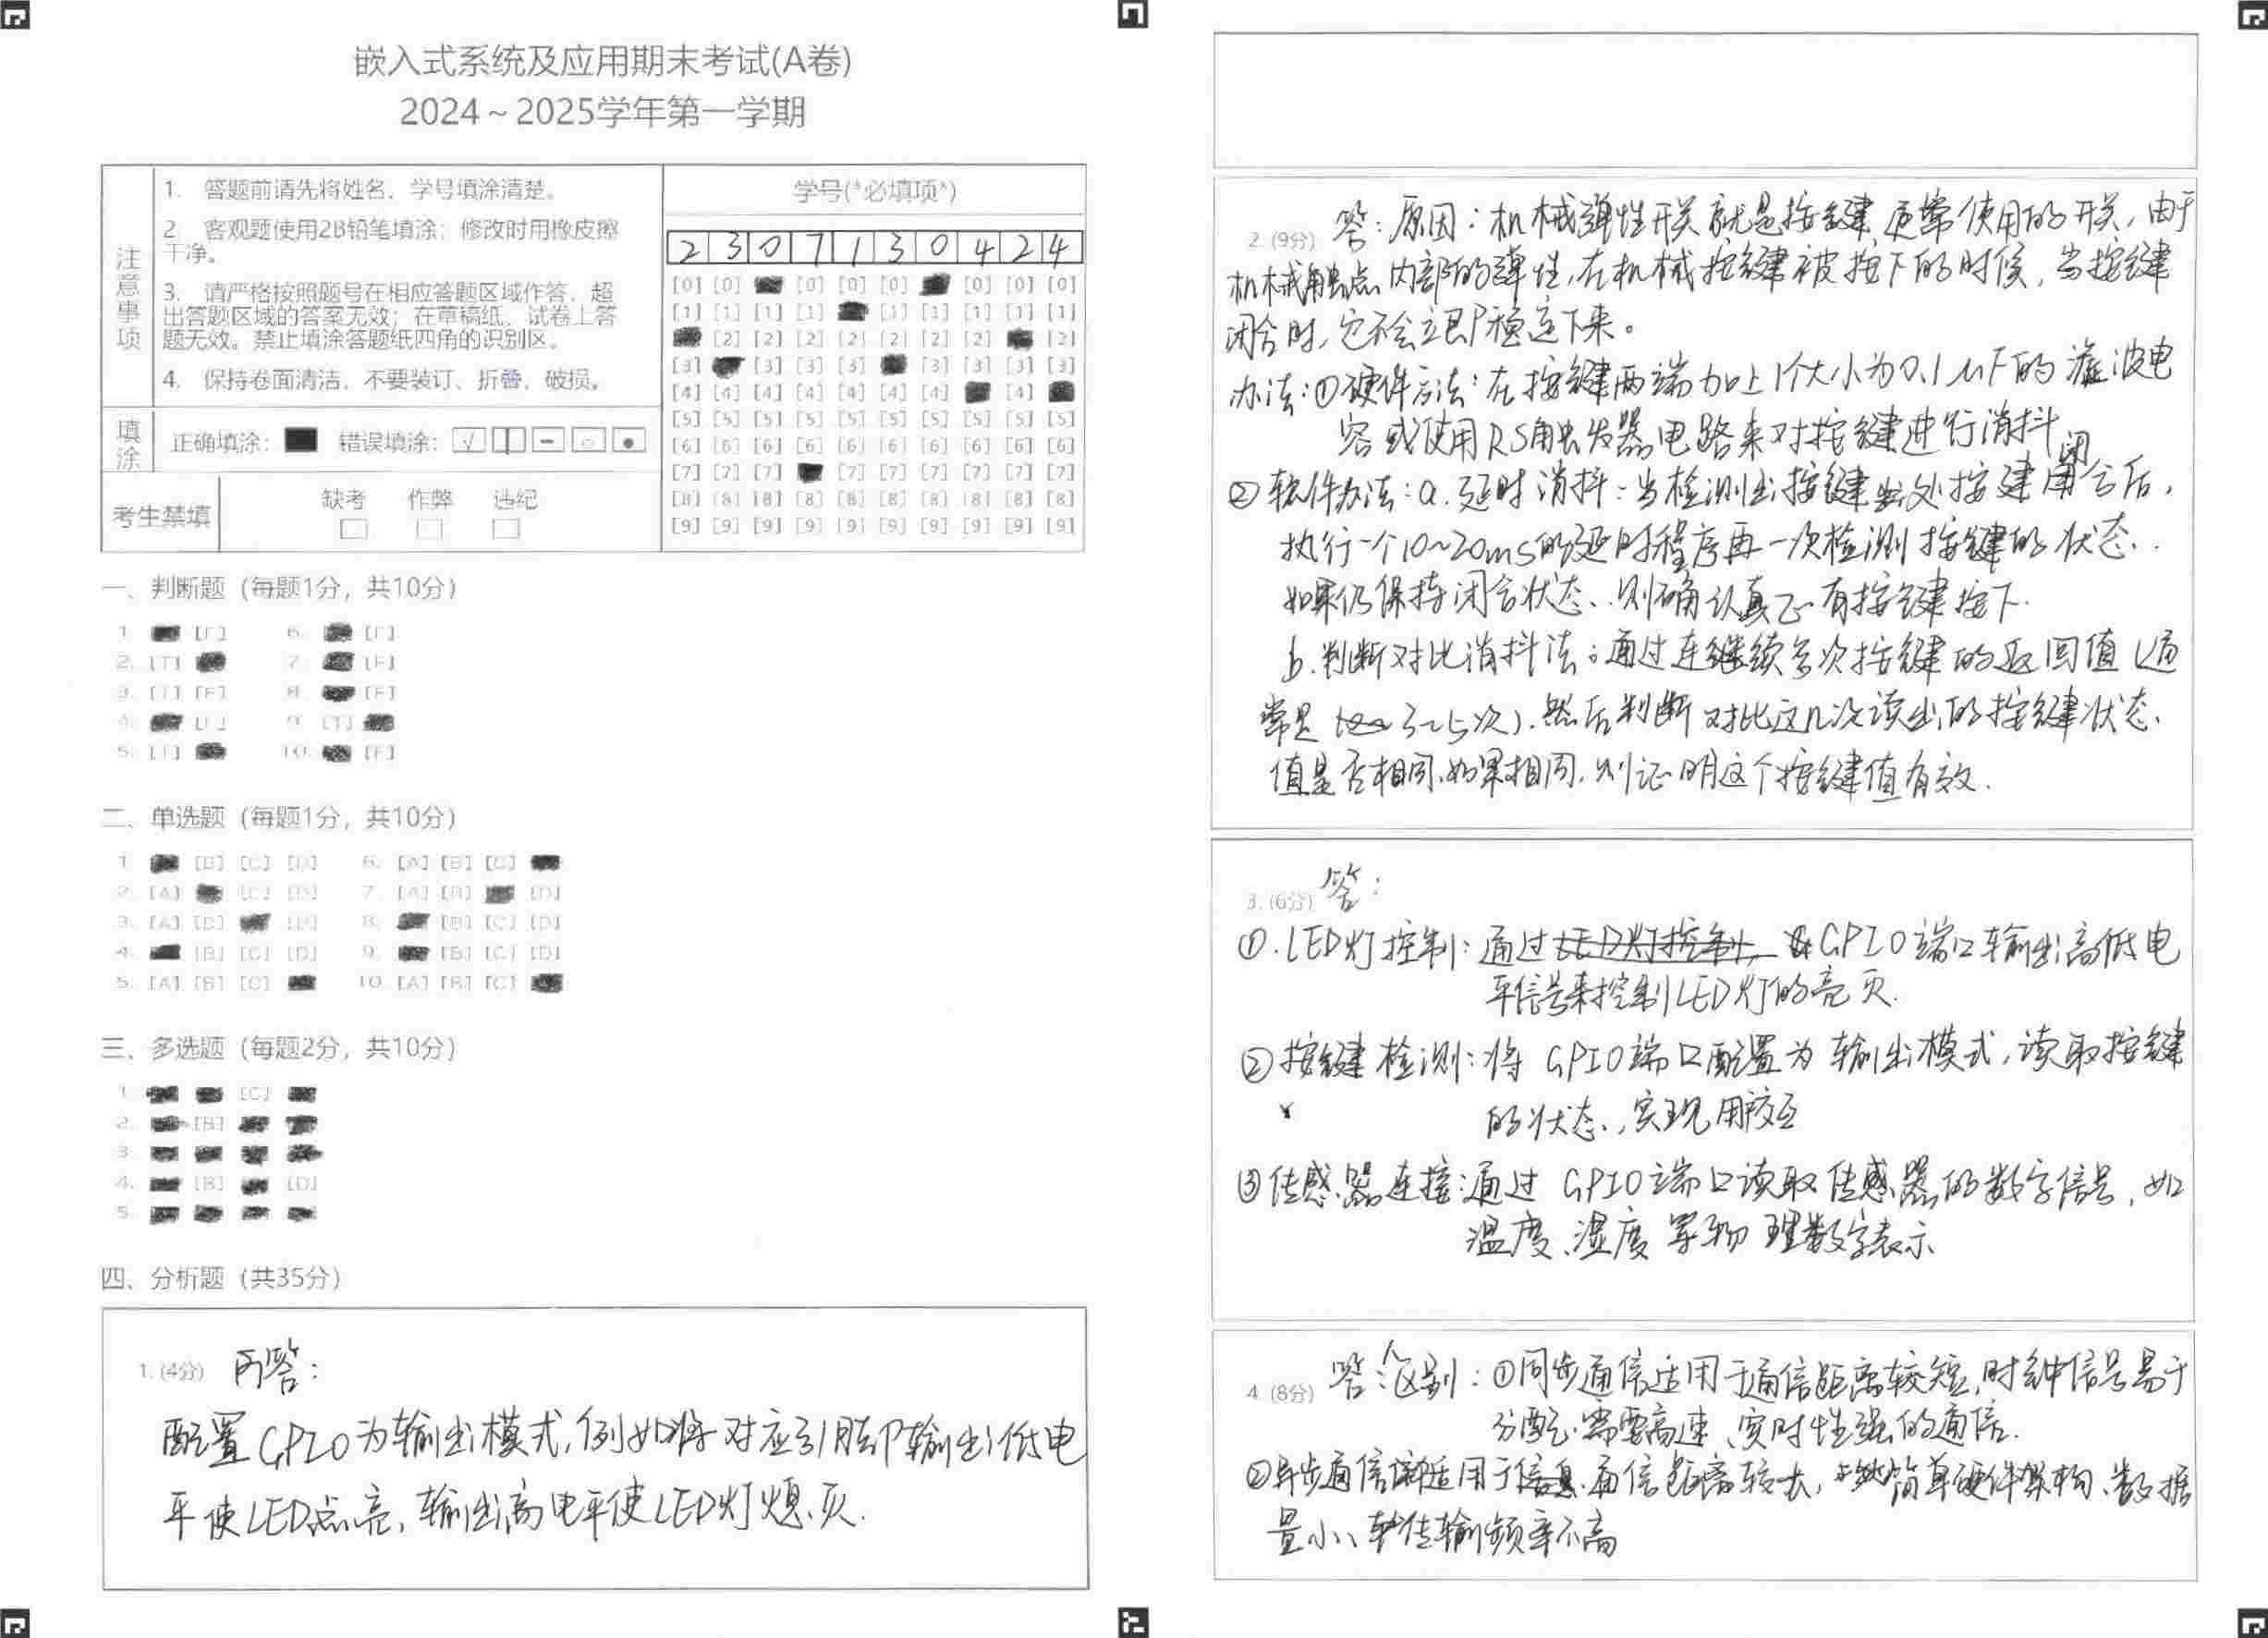 嵌入式系统及应用期末考试(A卷)
2024～2025学年第一学期
注意事项
1. 答题前请先将姓名、学号填涂清楚。
2. 客观题使用2B铅笔填涂；修改时用橡皮擦
干净。
3. 请严格按照题号在相应答题区域作答，超
出答题区域的答案无效；在草稿纸、试卷上答
题无效。禁止填涂答题纸四角的识别区。
4. 保持卷面清洁，不要装订、折叠、破损。
填涂 正确填涂： 错误填涂：
考生禁填 缺考 作弊 违纪
学号(*必填项*)
2 3 0 7 1 3 0 4 2 4
[0] [0] [0] [0] [0] [0] [0] [0]
[1] [1] [1] [1] [1] [1] [1] [1] [1]
[2] [2] [2] [2] [2] [2] [2] [2]
[3] [3] [3] [3] [3] [3] [3] [3]
[4] [4] [4] [4] [4] [4] [4] [4]
[5] [5] [5] [5] [5] [5] [5] [5] [5] [5]
[6] [6] [6] [6] [6] [6] [6] [6] [6] [6]
[7] [7] [7] [7] [7] [7] [7] [7] [7]
[8] [8] [8] [8] [8] [8] [8] [8] [8] [8]
[9] [9] [9] [9] [9] [9] [9] [9] [9] [9]
一、判断题（每题1分，共10分）
1. [F] 6. [F]
2. [T] 7. [F]
3. [T] [F] 8. [F]
4. [F] 9. [T]
5. [T] 10. [F]
二、单选题（每题1分，共10分）
1. [B] [C] [D] 6. [A] [B] [C]
2. [A] [C] [D] 7. [A] [B] [D]
3. [A] [B] [D] 8. [B] [C] [D]
4. [B] [C] [D] 9. [B] [C] [D]
5. [A] [B] [C] 10. [A] [B] [C]
三、多选题（每题2分，共10分）
1. [C]
2. [B]
3.
4. [B] [D]
5.
四、分析题（共35分）
1. (4分) 答：
配置GPIO为输出模式，例如将对应引脚输出低电
平使LED点亮，输出高电平使LED灯熄灭.
2. (9分) 答：原因：机械弹性开关就是按键通常使用的开关，由于
机械触点内部的弹性，在机械按键被按下的时候，当按键
闭合时，它不会立即稳定下来。
办法：①硬件方法：在按键两端加上1个大小为0.1μF的滤波电
容或使用RS触发器电路来对按键进行消抖
②软件办法：a.延时消抖：当检测出按键处按建闭合后，
执行一个10~20ms的延时程序再一次检测按键的状态.
如果仍保持闭合状态，则确认真正有按键按下.
b.判断对比消抖法：通过连续多次按键的返回值(通
常是3~5次).然后判断对比这几次读出的按键状态
值是否相同,如果相同,则证明这个按键值有效.
3. (6分) 答：
①.LED灯控制：通过GPIO端口输出高低电
平信号来控制LED灯的亮灭.
②按键检测：将GPIO端口配置为输出模式，读取按键
的状态，实现用交互
③传感器连接：通过GPIO端口读取传感器的数字信号，如
温度、湿度等物理数字表示
4. (8分) 答：区别：①同步通信适用于通信距离较短，时钟信号易于
分配.需要高速、实时性强的通信.
②异步通信适用于通信距离较大，简单硬件架构、数据
量小、传输频率不高